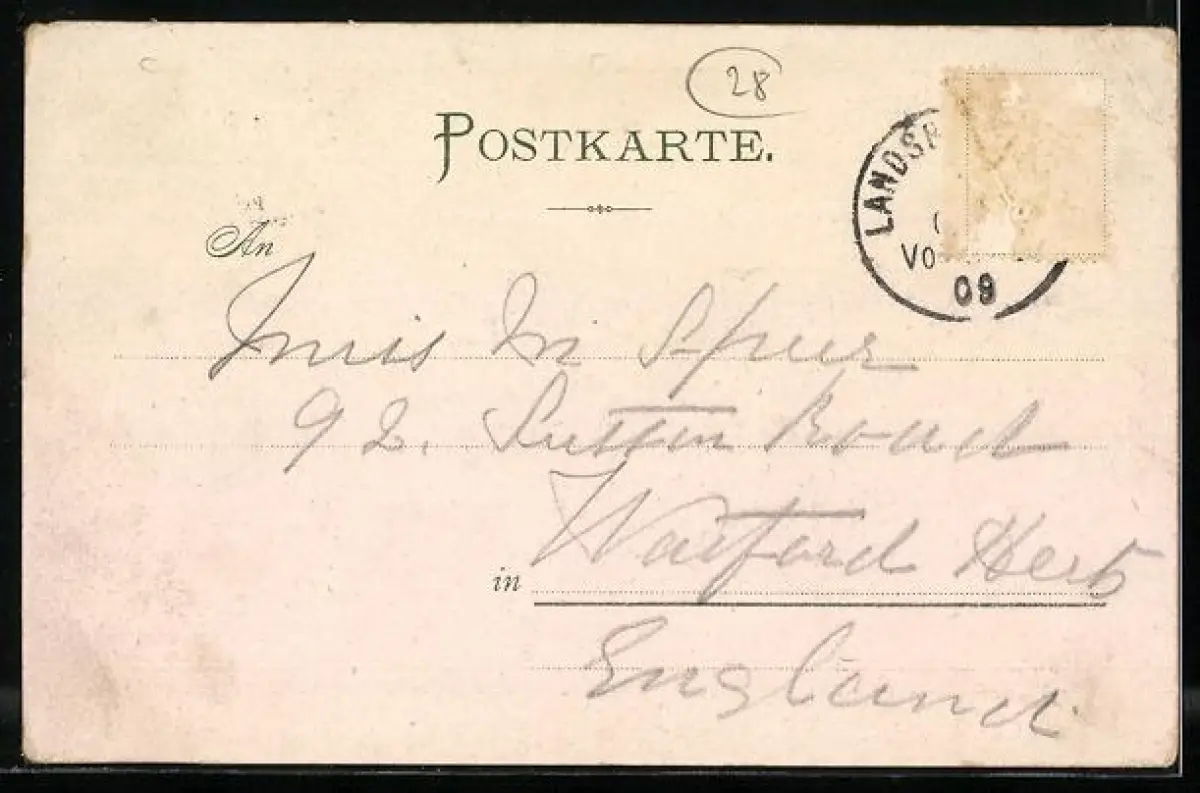 28
POSTKARTE.
LANDS
VO
09
An
92. Sutton Road
in Watford Herts
England